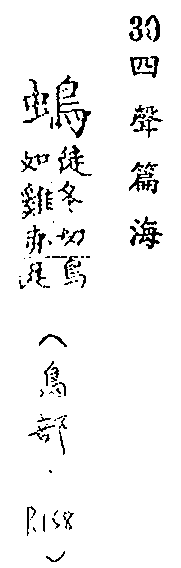 30四聲篇海
徒冬切鳥
如雞赤足
(鳥部.P.158)